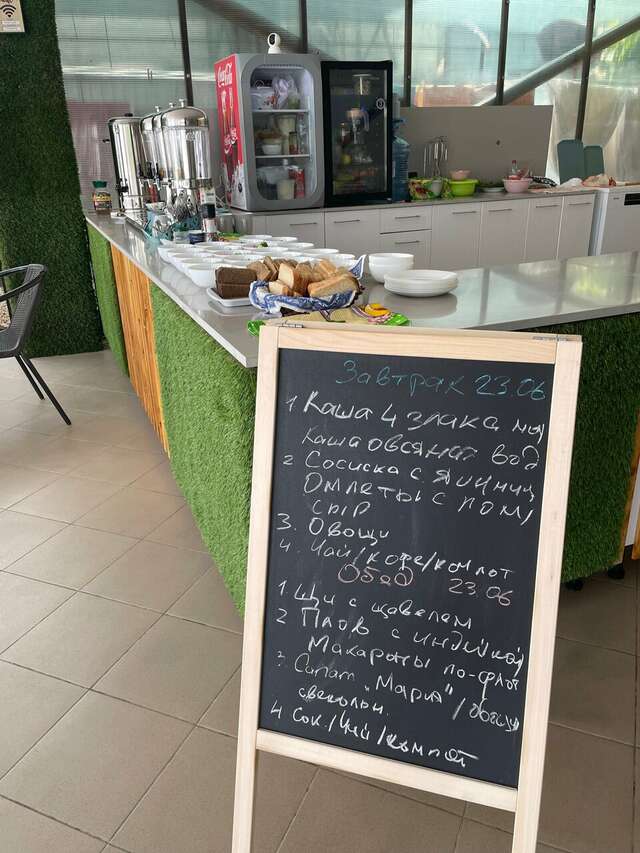 Coca-Cola
Завтрак 23.06
1 Каша 4 злака мол
Каша овсяная вод
2 Сосиска с яичниц
Омлеты с пом/
сыр
3. Овощи
4. Чай/кофе/компот
Обед 23.06
1 Щи с щавелем
2 Плов с индейкой
Макароны по-флот
3 Салат "Мария" /
свекольн.
4 Сок/Чай/компот